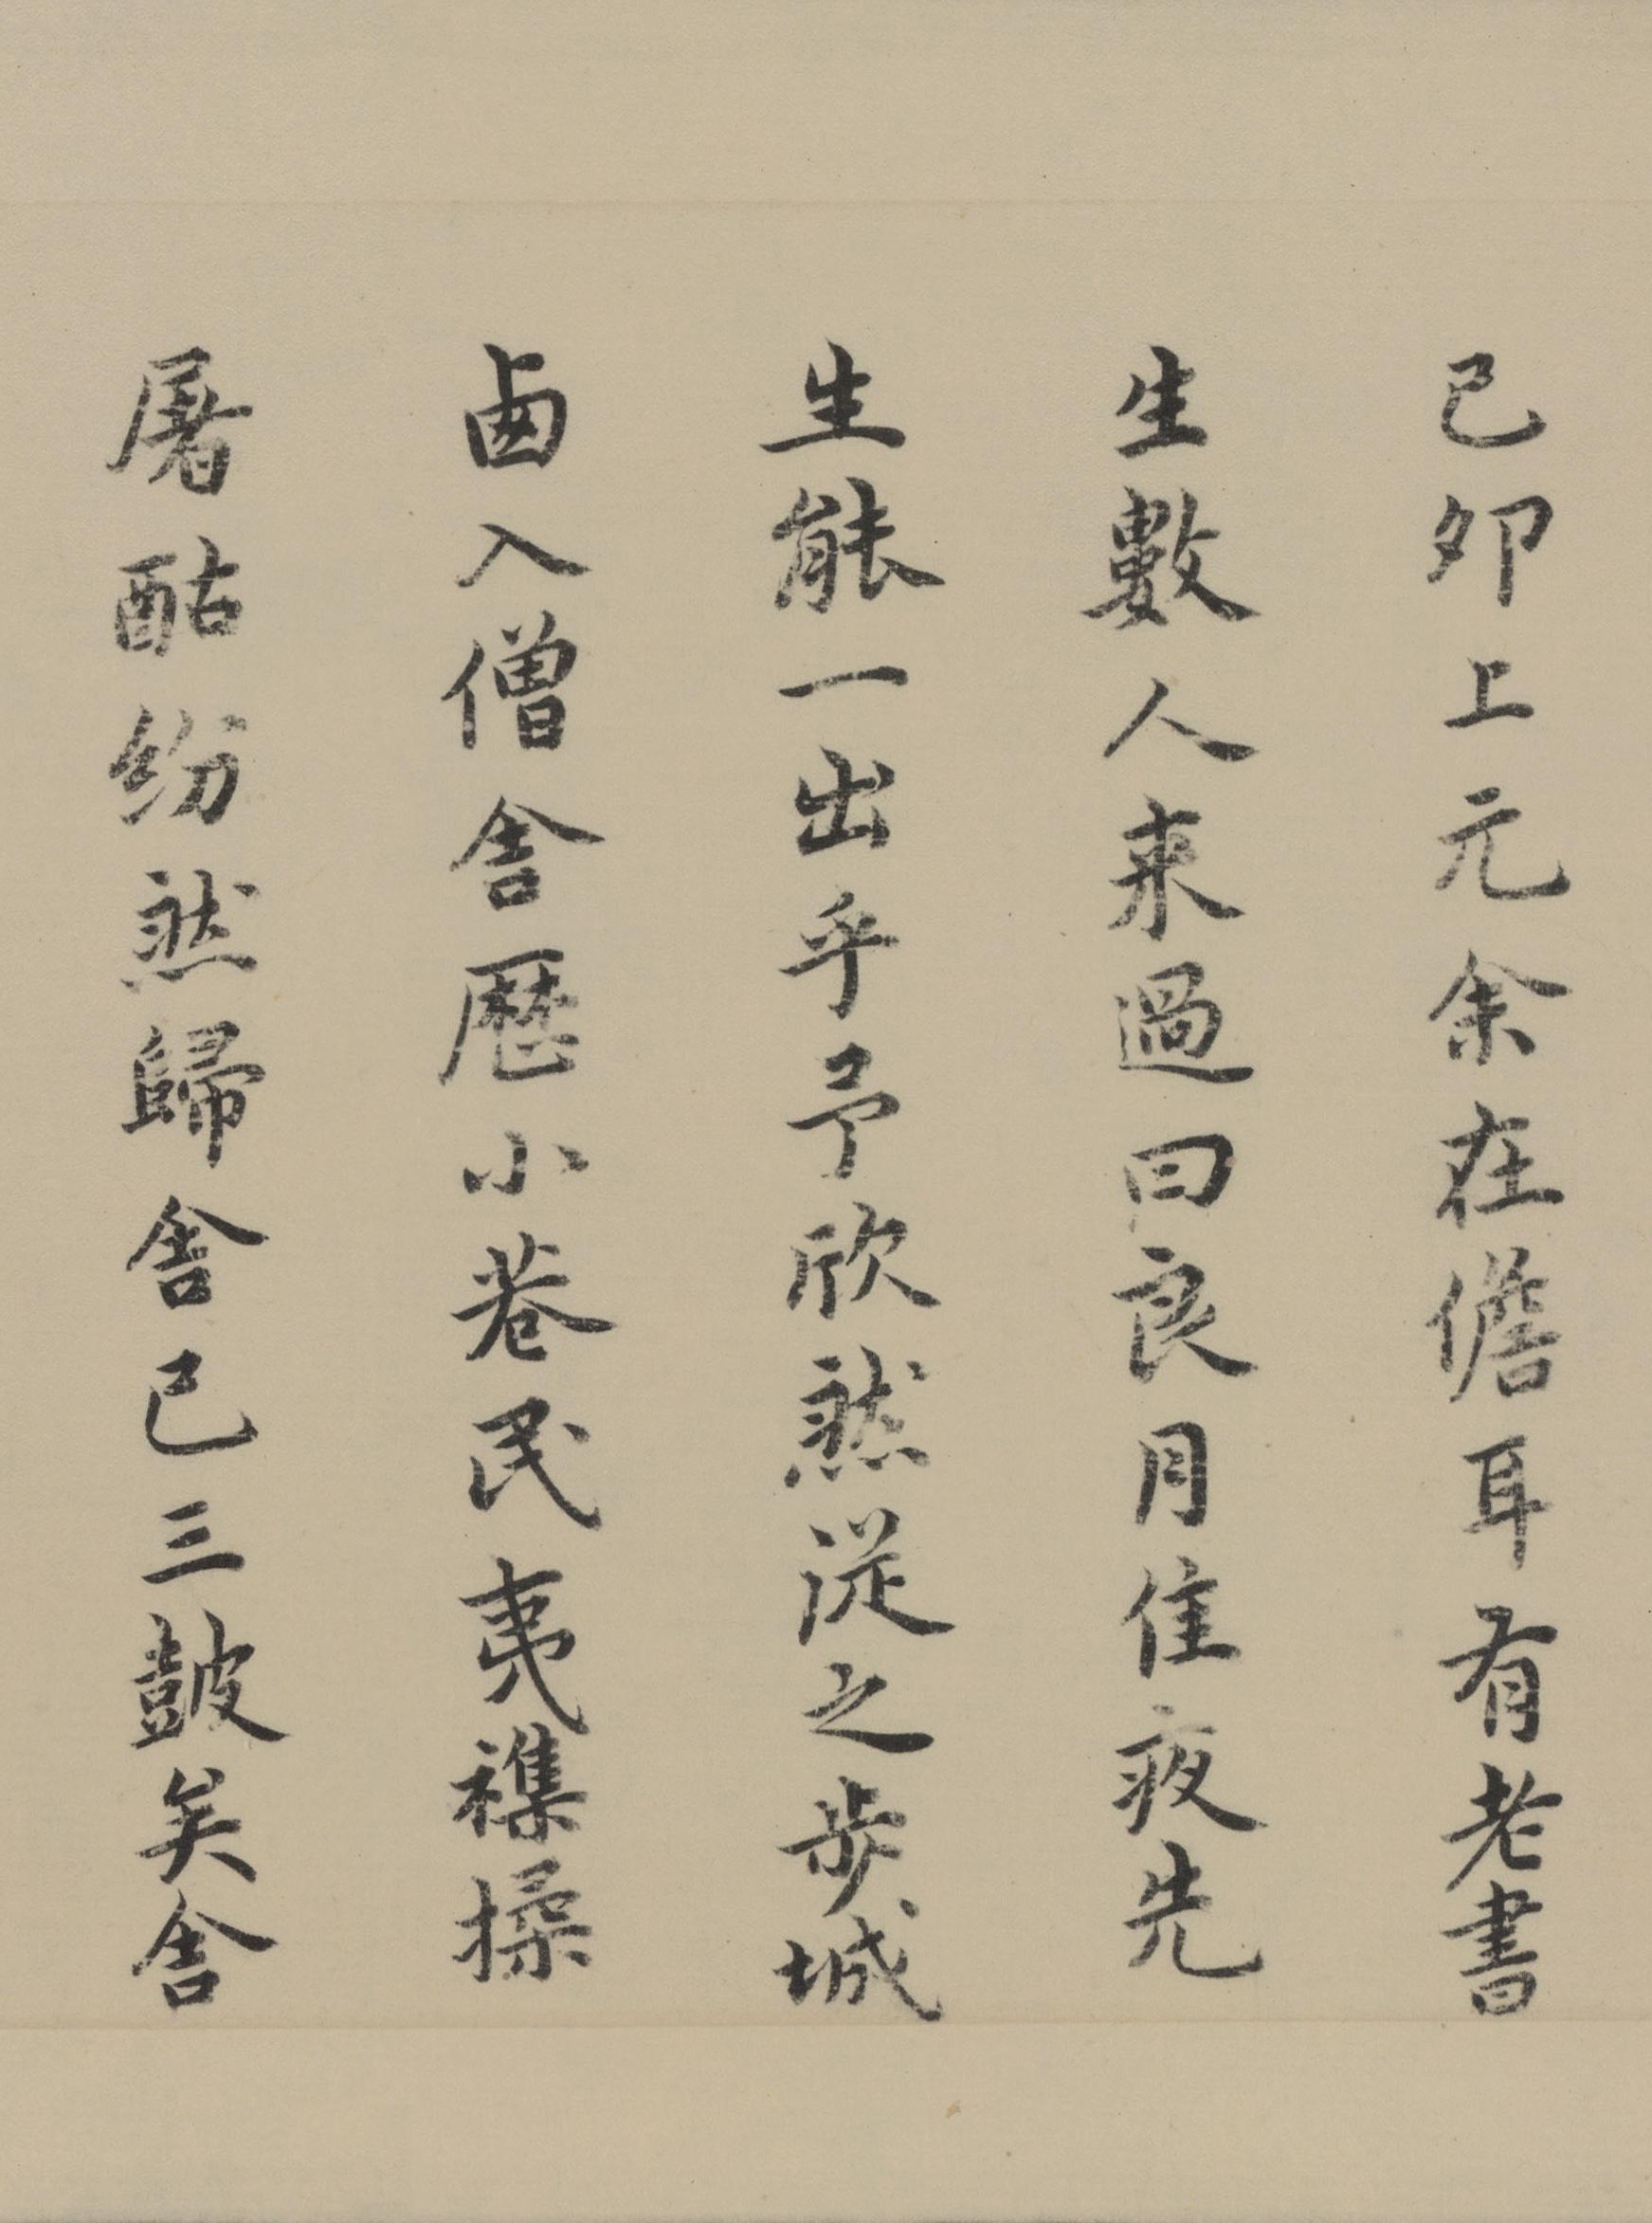 己卯上元余在儋耳有老書
生數人来過曰良月佳夜先
生能一出乎予欣然從之步城
西入僧舍歷小巷民夷襍揉
屠酤紛然歸舍已三鼓矣舍